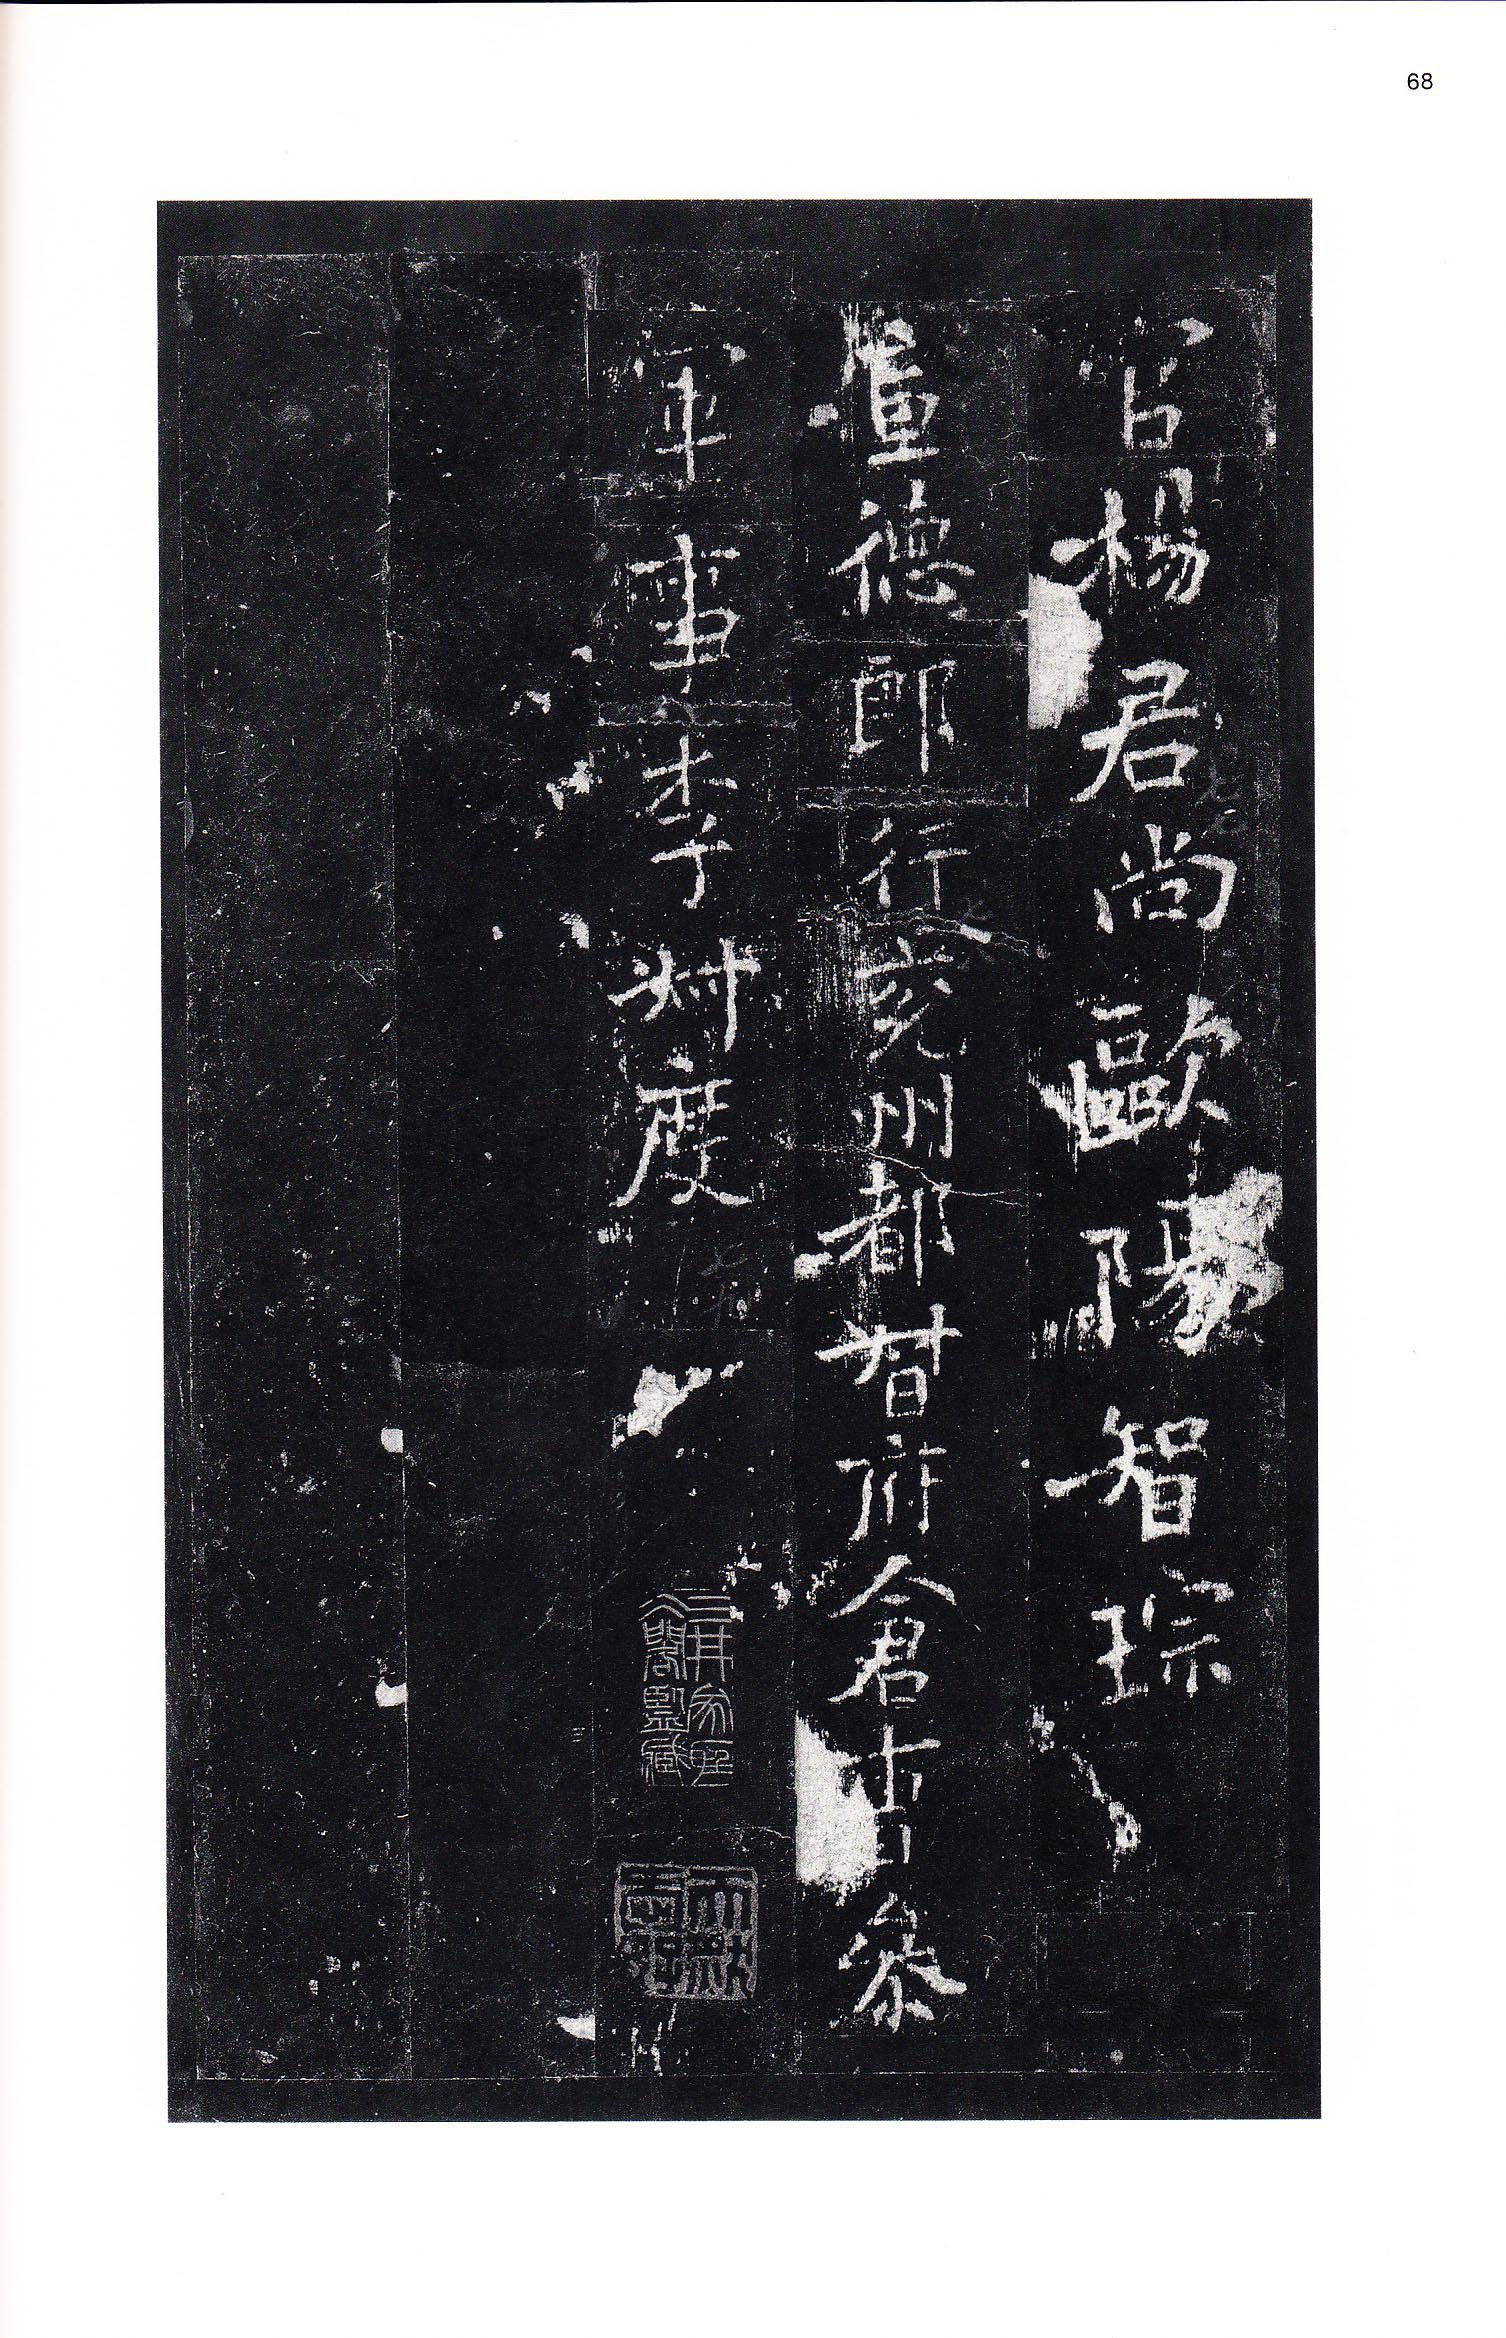 68
官楊君尚歐陽智琮
宣德郎行兗州都督府倉曹參
軍事李叔度
三井家聽
冰閣監藏